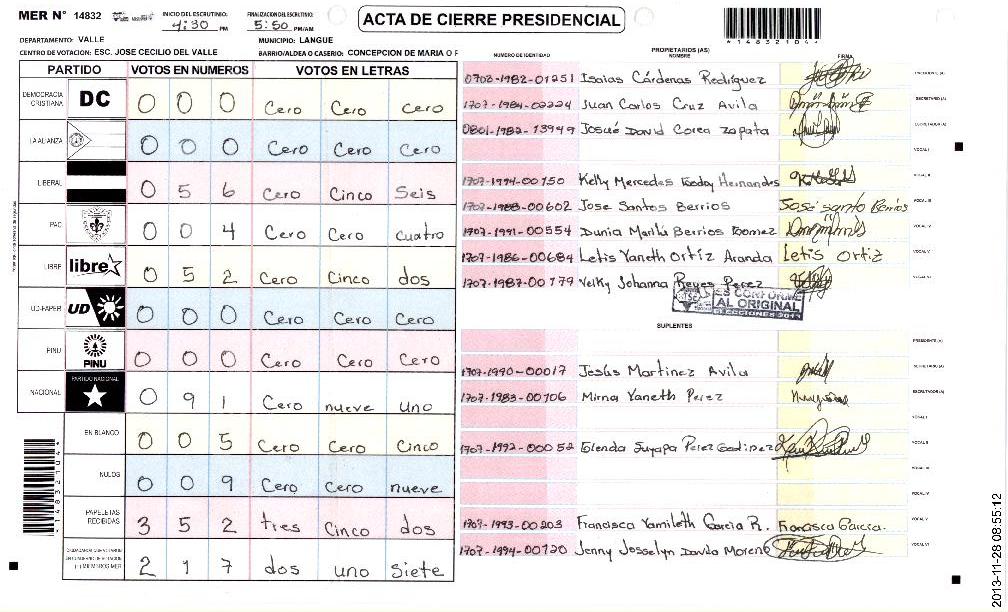 MER N° 14832
INICIO DEL ESCRUTINIO: 4:30 PM
FINALIZACION DEL ESCRUTINIO: 5:50 PM/AM
ACTA DE CIERRE PRESIDENCIAL
*14832104*
DEPARTAMENTO: VALLE
MUNICIPIO: LANGUE
CENTRO DE VOTACION: ESC. JOSE CECILIO DEL VALLE
BARRIO/ALDEA O CASERIO: CONCEPCION DE MARIA O F
PARTIDO VOTOS EN NUMEROS VOTOS EN LETRAS
DEMOCRACIA CRISTIANA DC 0 0 0 Cero Cero cero
LA ALIANZA 0 0 0 Cero Cero Cero
LIBERAL 0 5 6 Cero Cinco Seis
PAC 0 0 4 Cero Cero cuatro
LIBRE libre 0 5 2 Cero Cinco dos
UD-FAPER UD 0 0 0 Cero Cero Cero
PINU PINU 0 0 0 Cero Cero Cero
NACIONAL PARTIDO NACIONAL 0 9 1 Cero nueve uno
EN BLANCO 0 0 5 Cero Cero Cinco
NULOS 0 0 9 Cero Cero nueve
PAPELETAS RECIBIDAS 3 5 2 tres Cinco dos
2 1 7 dos uno Siete
*14832104*
NUMERO DE IDENTIDAD PROPIETARIOS (AS) NOMBRE FIRMA
0702-1982-01251 Isaias Cárdenas Rodríguez PRESIDENTE (A)
1707-1984-02224 Juan Carlos Cruz Avila SECRETARIO (A)
0801-1982-13949 Josué David Corea Zapata ESCRUTADOR (A)
VOCAL I
1707-1994-00150 Kelly Mercedes Hernandes VOCAL II
1707-1988-00602 Jose Santos Berrios José santo Berrios VOCAL III
1707-1991-00554 Dunia Berrios Gomez VOCAL IV
1707-1986-00684 Letis Yaneth Ortíz Aranda Letis Ortiz VOCAL V
1707-1987-00179 Velky Johanna Reyes Perez VOCAL VI
ES CONFORME AL ORIGINAL
ELECCIONES 2013
SUPLENTES
PRESIDENTE (A)
1707-1990-00017 Jesús Martinez Avila SECRETARIO (A)
1707-1983-00106 Mirna Yaneth Perez ESCRUTADOR (A)
VOCAL I
1707-1992-00052 Glenda Suyapa Perez Godinez VOCAL II
VOCAL III
VOCAL IV
1709-1993-00203 Francisca Yamileth Garcia R. Francisca Garcia. VOCAL V
1707-1994-00120 Jenny Josselyn Davila Moreno VOCAL VI
2013-11-28 08:55:12